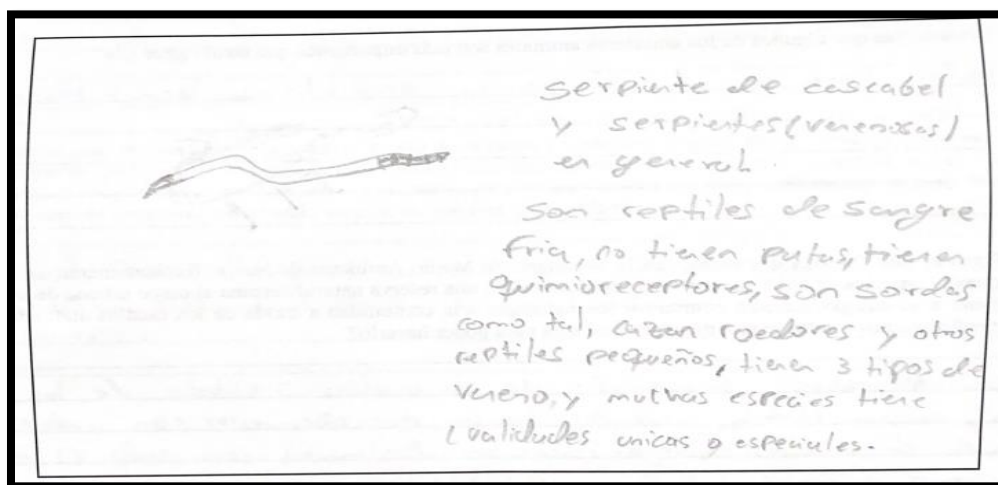 serpiente de cascabel
y serpientes (venenosas)
en general.
son reptiles de sangre
fria, no tienen patas, tienen
quimioreceptores, son sordas
como tal, cazan roedores y otros
reptiles pequeños, tienen 3 tipos de
veneno, y muchas especies tiene
cualidades unicas o especiales.